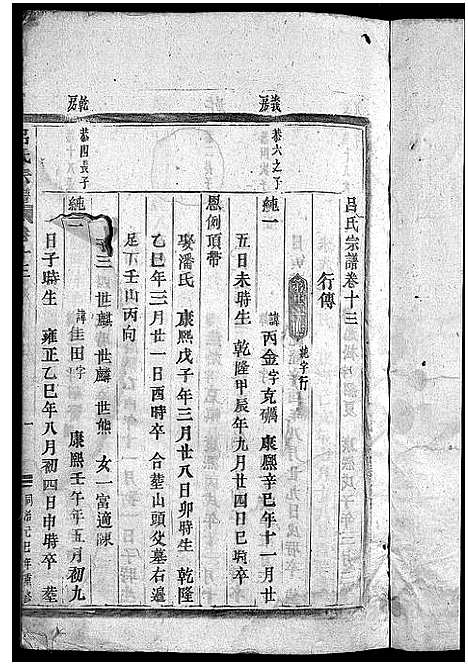 呂氏宗譜卷十三
行傳
純字行
恭六之子
純一 諱丙金字克礪 康熙辛巳年十一月廿
五日未時生 乾隆甲辰年九月廿四日巳時卒
恩例頂帶
娶潘氏 康熙戊子年三月廿八日卯時生 乾隆
乙巳年三月廿一日酉時卒 合塟山頭父墓右邉
壬山丙向
三 世麒 世麟 世熊 女一富適陳
乾房
恭四長子
純 諱佳田字 康熙壬午年五月初九
日子時生 雍正乙巳年八月初四日申時卒 塟